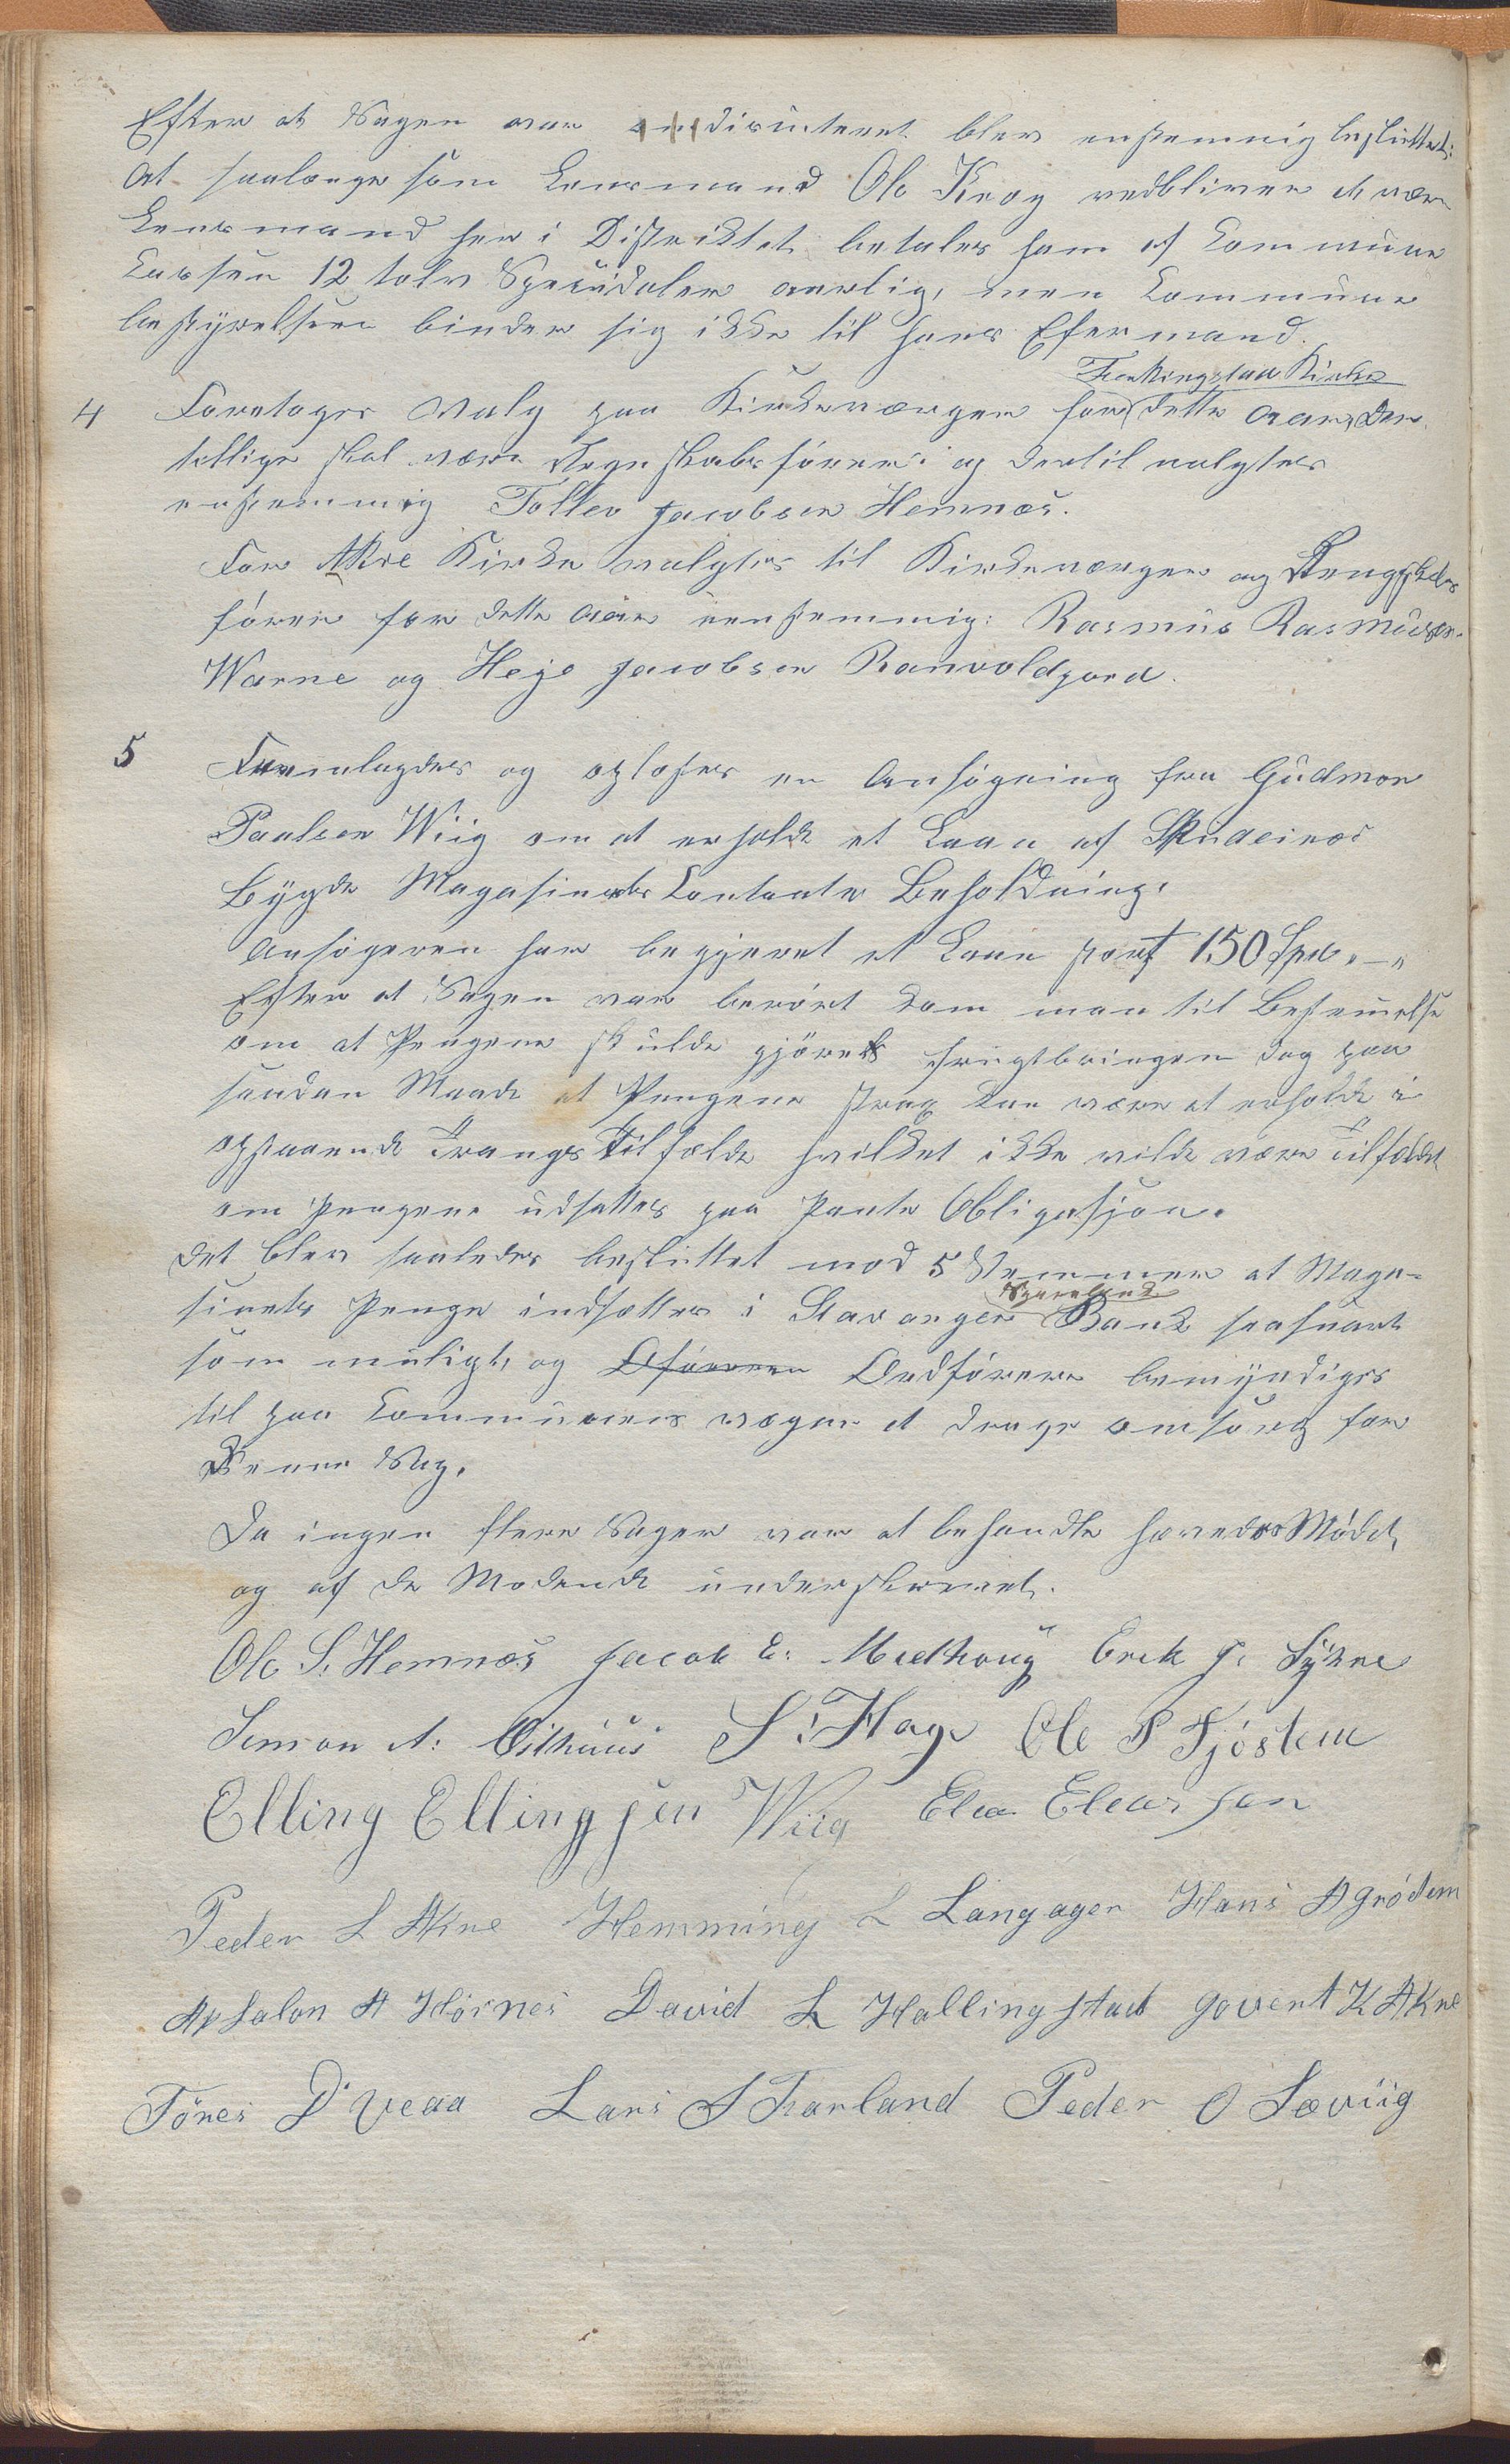 Efter at Sagen var omdiscuteret blev enstemmig besluttet:
At saalænge som Lensmand Ole Krog vedbliver at være
Lensmand her i Distriktet betales ham af Commune
Cassen 12 tolv Speciedaler aarlig, men Commune
bestyrelsen binder sig ikke til hans Efermand.
Ferkingstad Kirke
4 Foretoges Valg paa Kirkeværger for dette Aar, der
tillige skal være Regnskabsfører: og dertil valgtes
enstemmig Tollev Jacobsen Hemnæs.
For Akre Kirke valgtes til Kirkeværger og Rengskabs
fører for dette Aar eenstemmig: Rasmus Rasmusen
Warne og Heje Jacobsen Ranvoldgord.
5 Fremlagdes og oplæstes en Ansøgning fra Gudmon
Paulsen Wiig om at erholde et Laan af Skudeinæs
Bygde Magasinets Contante Beholdning.
Ansøgeren har begjæret et Laan stort 150 Spd. " – "
Efter at Sagen var berørt kom man til Bestemelse
om at Pengene skulde gjøres frugtbringen dog paa
saadan Maade at Pengene strax kan være at erholde i
opstaaende Trangs Tilfælde hvilket ikke vilde være Tilfældet
om Pengene udsattes paa Pante Obligasjon.
Det blev saaledes besluttet mod 5 Stemmer at Maga-
Sparebank
sinets Penge indsættes i Stavanger Bank saasnart
som muligt, og Oførere Ordførere bemyndiges
til paa Communens vegne at drage omsorg for
Denne Sag.
Da ingen flere Sager var at behandle hævedes Mødet,
og af de Modende underskrevet.
Ole S. Hemnæs Jacob E. Medhoug Erik J. Sÿhre
Simon A: Osthuus S. Hage Ole P Tjøstem
Elling Ellingsen Wiig Elia Eleassen
Peder L Akre Hemming L Langager Hans A Grødem
Apsalon A Hösnes David L Hallingstad Govert K Akre
Tönes D. Veaa Lars S Tharland Peder O Sæviig